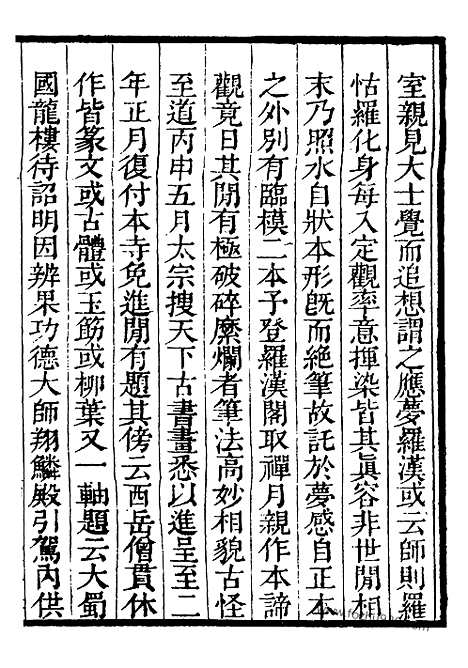 室親見大士覺而追想謂之應夢羅漢或云師則羅
怙羅化身每入定觀率意揮染皆其真容非世閒相
末乃照水自狀本形既而絶筆故託於夢感自正本
之外別有臨模二本予登羅漢閣取禪月親作本諦
觀竟日其閒有極破碎糜爛者筆法高妙相貌古怪
至道丙申五月太宗搜天下古書畫悉以進呈至二
年正月復付本寺免進閒有題其傍云西岳僧貫休
作皆篆文或古體或玉筯或柳葉又一軸題云大蜀
國龍樓待詔明因辨果功德大師翔麟殿引駕內供